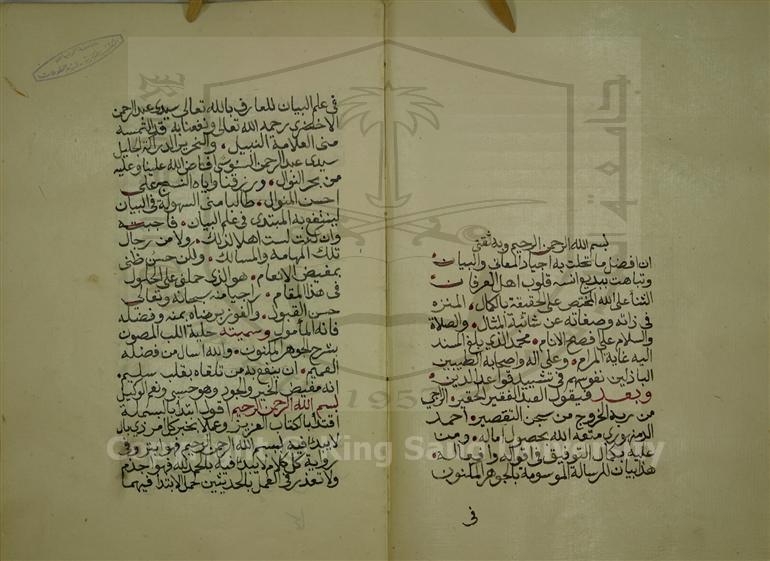 بسم الله الرحمن الرحيم وبه ثقتي
ان افضل ما تحلت به اجياد المعاني والبيان
وتباهت ببديع انسه قلوب اهل العرفان
الثنا على الله المختص على الحقيقة بالكمال المنزه
في ذاته وصفاته عن شائبة المثال والصلاة
والسلام على افصح الانام محمد الذي بلغ المسند
اليه غاية المرام وعلى اله واصحابه الطيبين
الباذلين نفوسهم في تشييد قواعد الدين
وبعد فيقول العبد الفقير الحقير الراجي
من ربه الخروج من سجن التقصير احمد
الدمنهوري متعه الله بحصول اماله ومن
عليه بكمال التوفيق في اقواله وافعاله
هذا بيان للرسالة الموسومة بالجوهر المكنون
في
في علم البيان للعارف بالله تعالى سيدي عبد الرحمن
الاخضري رحمه الله تعالى ونفعنا به قد التمسه
مني العلامة النبيل والنحرير الدراكة الجليل
سيدي عبد الرحمن السوسي افاض الله علينا وعليه
من بحر النوال ورزقنا واياه النسج على
احسن المنوال طالبا مني السهولة في البيان
لينتفع به المبتدي في علم البيان فاجبته
وان كنت لست اهلا لذلك ولا من رجال
تلك المهامه والمسالك ولكن حسن ظني
بمفيض الانعام هو الذي حملني على الحلول
في هذا المقام راجيا منه سبحانه وتعالى
حسن القبول والفوز برضاه بمنه وفضله
فانه المأمول وسميته حلية اللب المصون
بشرح الجوهر المكنون والله اسال من فضله
العميم ان ينفع به من تلقاه بقلب سليم
انه مفيض الخير والجود وهو حسبي ونعم الوكيل
بسم الله الرحمن الرحيم اقول ابتدا بالبسملة
اقتدا بالكتاب العزيز وعملا بخبر كل امر ذي بال
لا يبدا فيه ببسم الله الرحمن الرحيم فهو ابتر وفي
رواية كل كلام لا يبدا فيه بالحمد لله فهو اجذم
ولا تعذر في العمل بالحديثين لحمل الابتدا فيهما
Copyright © King Saud University
1957